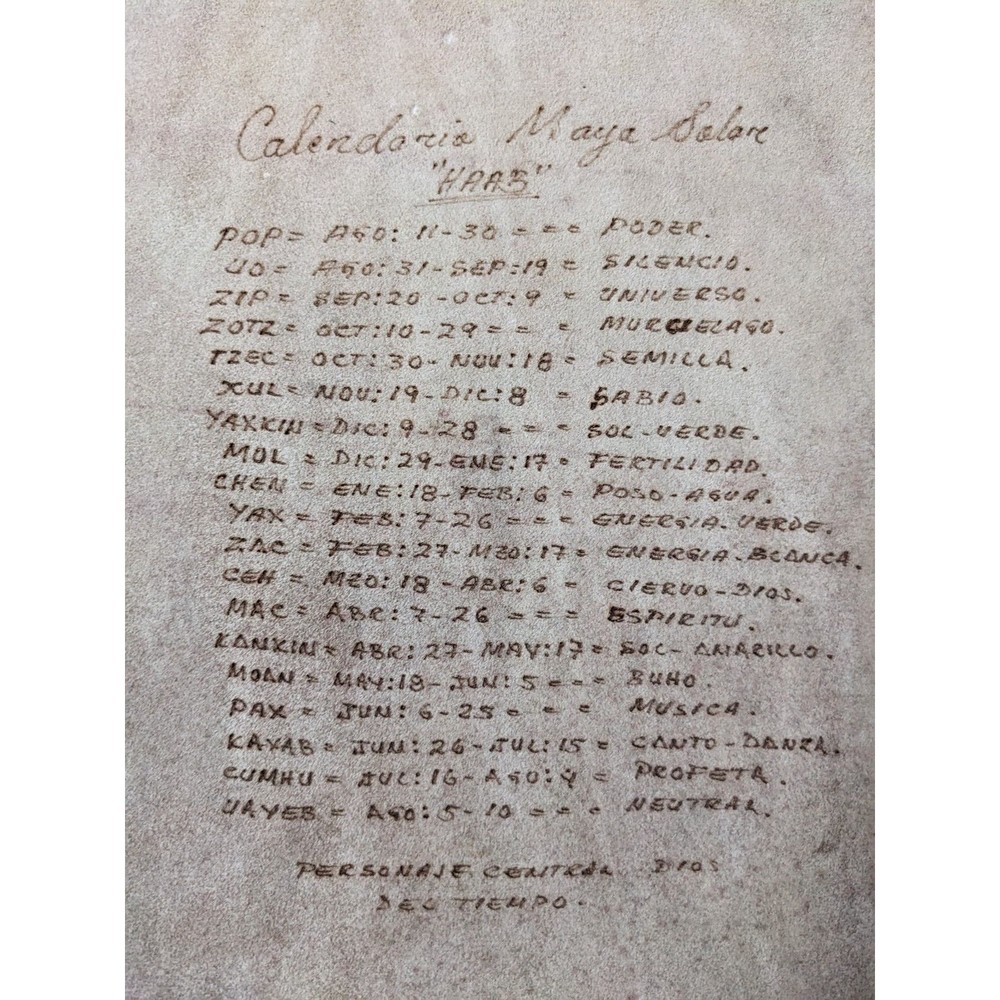 Calendario Maya Solar
"HAAB"
POP = AGO: 11-30 = = = PODER.
UO = AGO: 31-SEP:19 = SILENCIO.
ZIP = SEP:20 -OCT:9 = UNIVERSO.
ZOTZ = OCT:10-29 = = = MURCIELAGO.
TZEC = OCT:30- NOV:18 = SEMILLA.
XUL = NOV:19-DIC:8 = SABIO.
YAXKIN = DIC:9-28 = = = SOL-VERDE.
MOL = DIC:29-ENE:17 = FERTILIDAD.
CHEN = ENE:18-FEB:6 = POSO-AGUA.
YAX = FEB:7-26 = = = ENERGIA-VERDE.
ZAC = FEB:27-MZO:17 = ENERGIA-BLANCA.
CEH = MZO:18 -ABR:6 = CIERVO-DIOS.
MAC = ABR:7-26 = = = ESPIRITU.
KANKIN = ABR:27-MAY:17 = SOL-AMARILLO.
MOAN = MAY:18-JUN:5 = = = BUHO.
PAX = JUN:6-25 = = = MUSICA.
KAYAB = JUN:26-JUL:15 = CANTO-DANZA.
CUMHU = JUL:16-AGO:4 = PROFETA.
UAYEB = AGO:5-10 = = = NEUTRAL.
PERSONAJE CENTRAL DIOS
DEL TIEMPO.